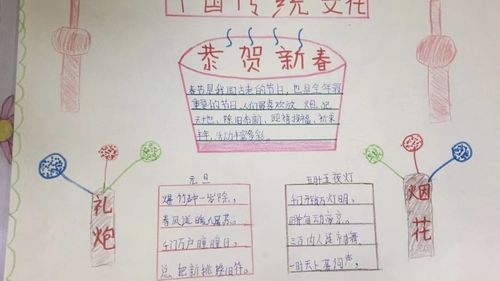 中国传统文化
恭贺新春
春节是我国古老的节日，也是全年最
重要的节日，人们最喜欢放 炮、祀
天地、除旧布新、迎禧接福、祈求
丰年、红火丰富多彩。
礼炮
元旦
爆竹声中一岁除，
春风送暖入屠苏。
千门万户曈曈日，
总把新桃换旧符。
正月十五夜灯
千门开锁万灯明，
正月中旬动帝京。
三百内人连袖舞，
一时天上著词声。
烟花